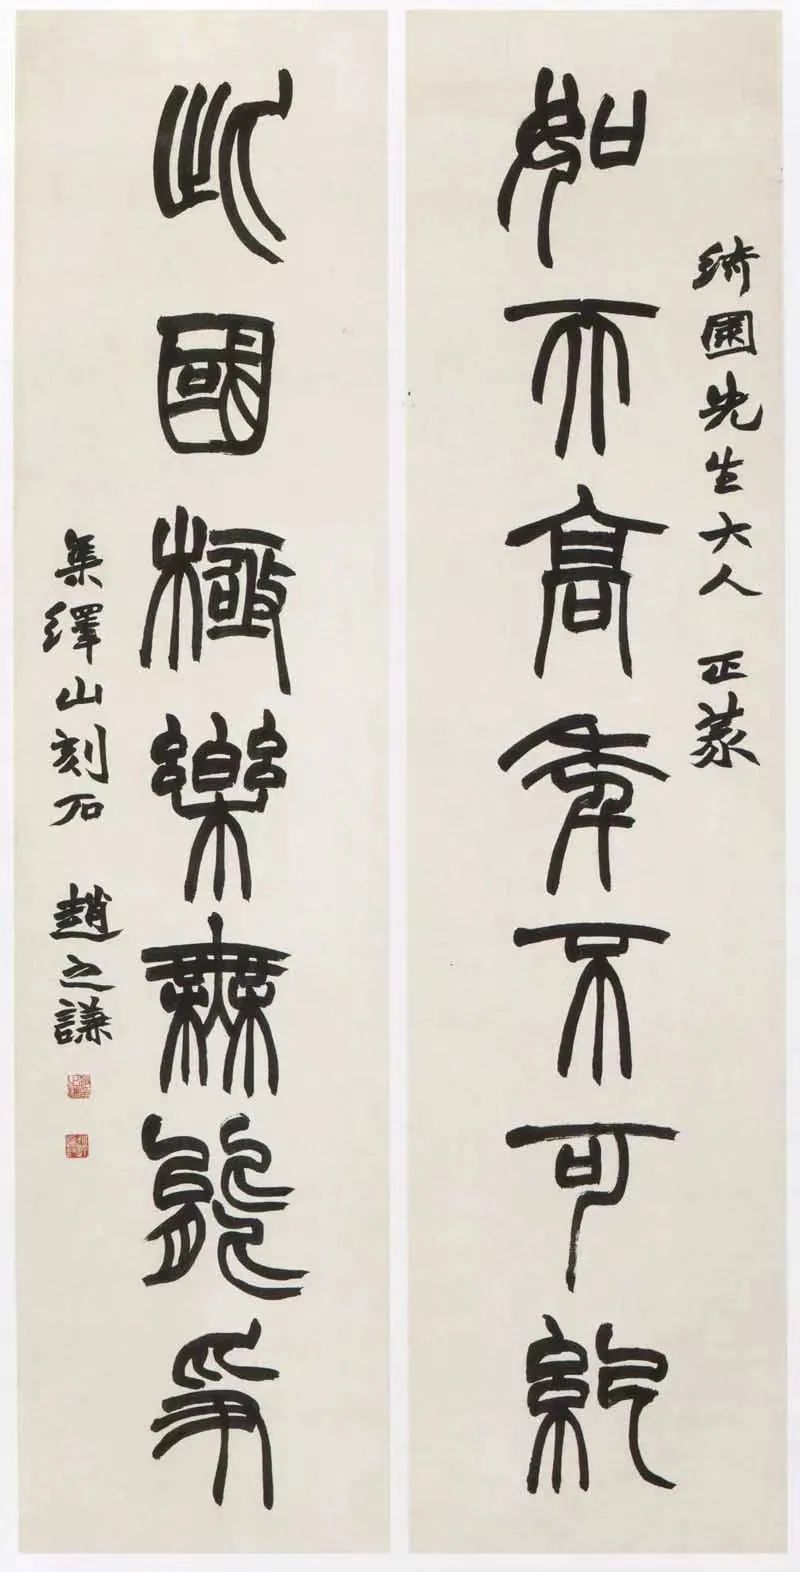 綺園先生大人 正篆
如天高年不可紀
此國極樂無能爭
集繹山刻石 趙之謙